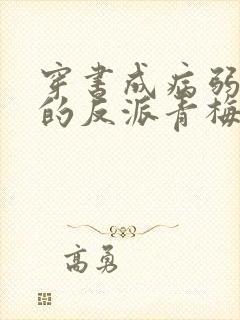 穿书成病弱
的反派青梅
高勇